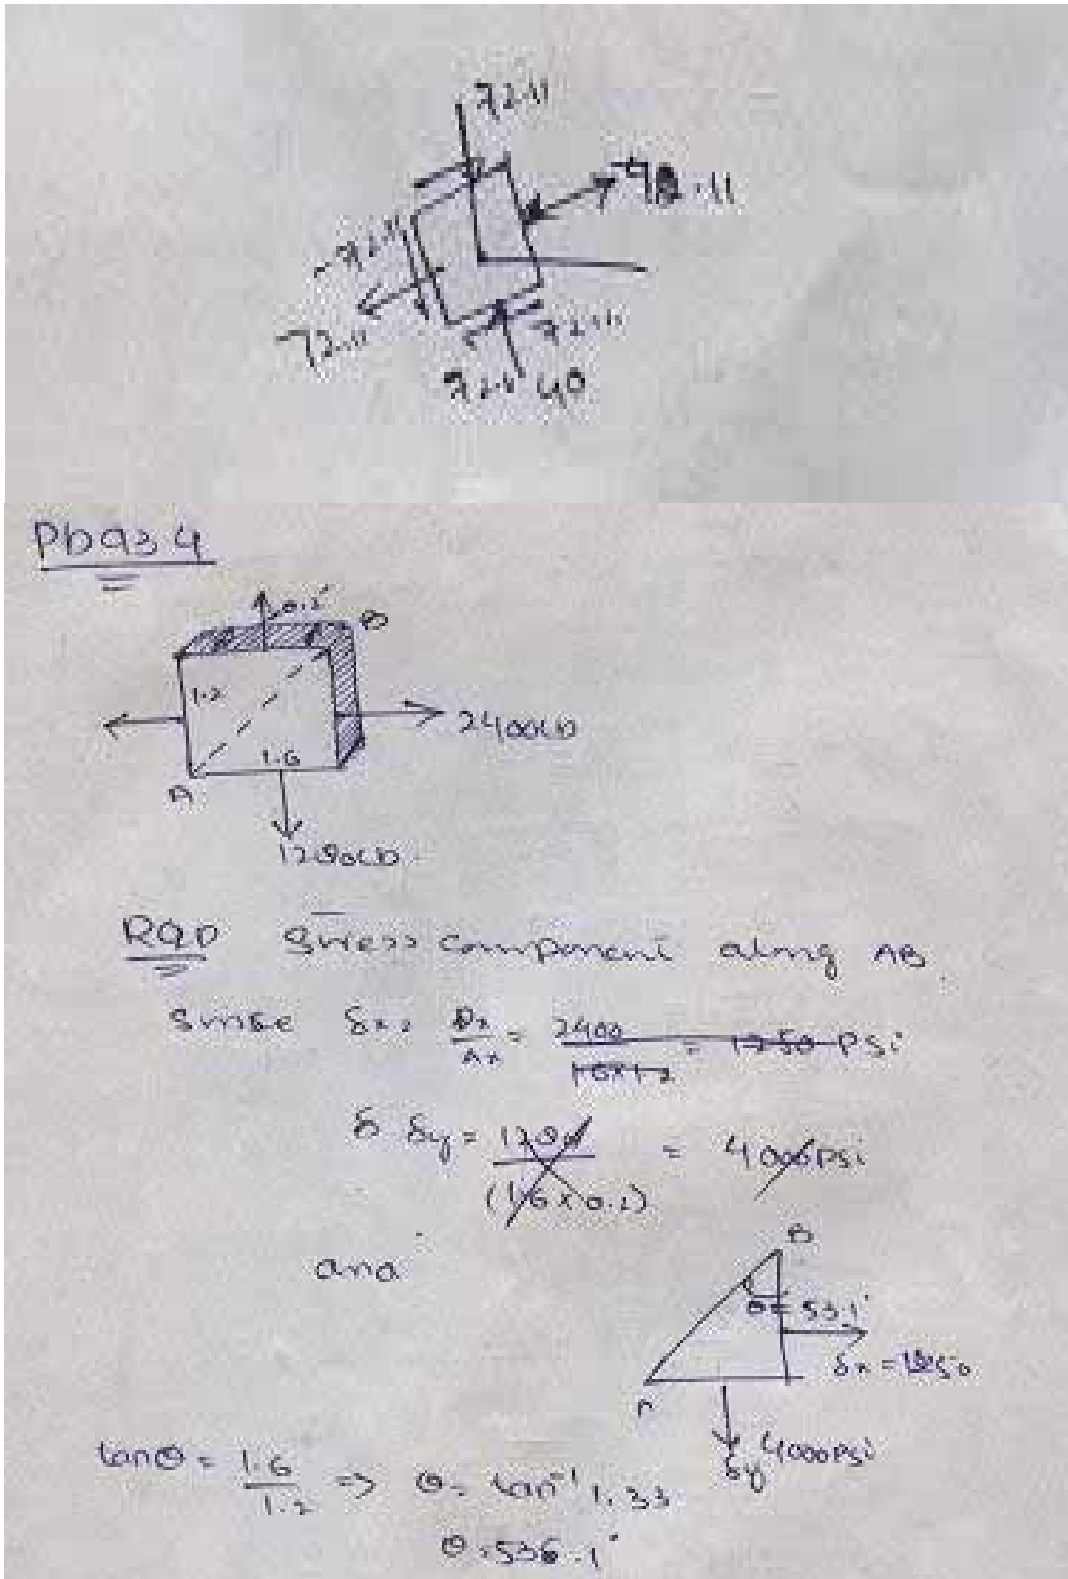 72.11
72.11
72.11
72.11
72.1 40
Pb 934
0.2"
B
1.2
2400LD
1.6
A
1200LD
RQD Stress component along AB.
Since δx = Px/Ax = 2400/1.6x1.2 = 1250 PSi
δ δy = 1200/(1.6x0.2) = 4000PSi
and
B
θ = 53.1°
δx = 1250
A
δy 4000PSi
tanθ = 1.6/1.2 => θ = tan⁻¹ 1.33
θ = 536.1°